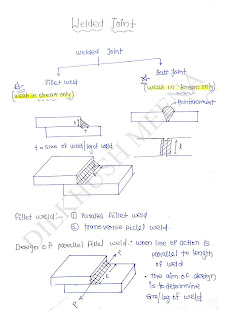 Welded Joint
Welded Joint
Fillet weld
(weak in shear only)
Butt Joint
(weak in tension only)
Reinforcement
t
t
l
t = size of weld/leg of weld
DILKHUSH MEENA
Fillet weld:- ① Parallel fillet weld
② transverse fillet weld
Design of parallel fillet weld:- when line of action is
parallel to length
of weld
P
• The aim of design
is to determine
size/leg of weld
P